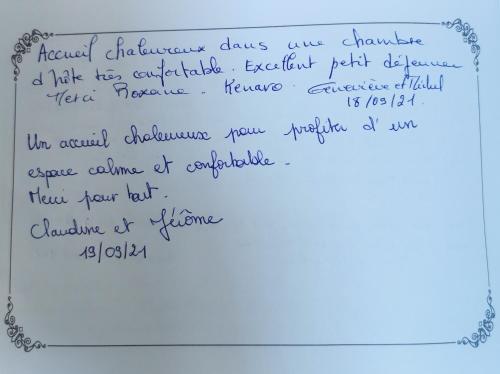 Accueil chaleureux dans une chambre
d'hôte très confortable. Excellent petit déjeuner
Merci Roxane. Kenavo. Geneviève et Michel
18/09/21.
Un accueil chaleureux pour profiter d'un
espace calme et confortable.
Merci pour tout.
Claudine et Jérôme
19/09/21